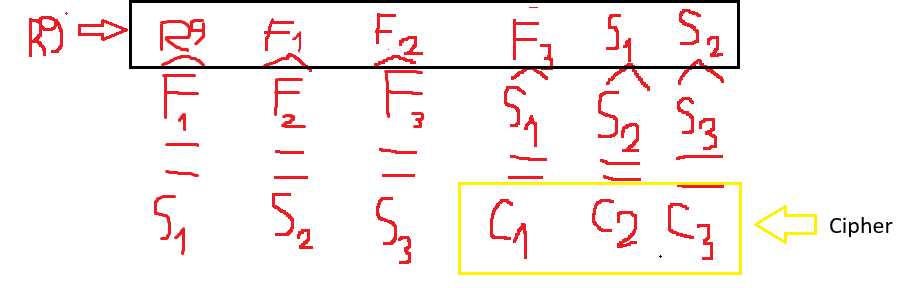 R9 R9 F1 F2 F3 S1 S2
^ ^ ^ ^ ^ ^
F1 F2 F3 S1 S2 S3
= = = = = =
S1 S2 S3 C1 C2 C3 Cipher